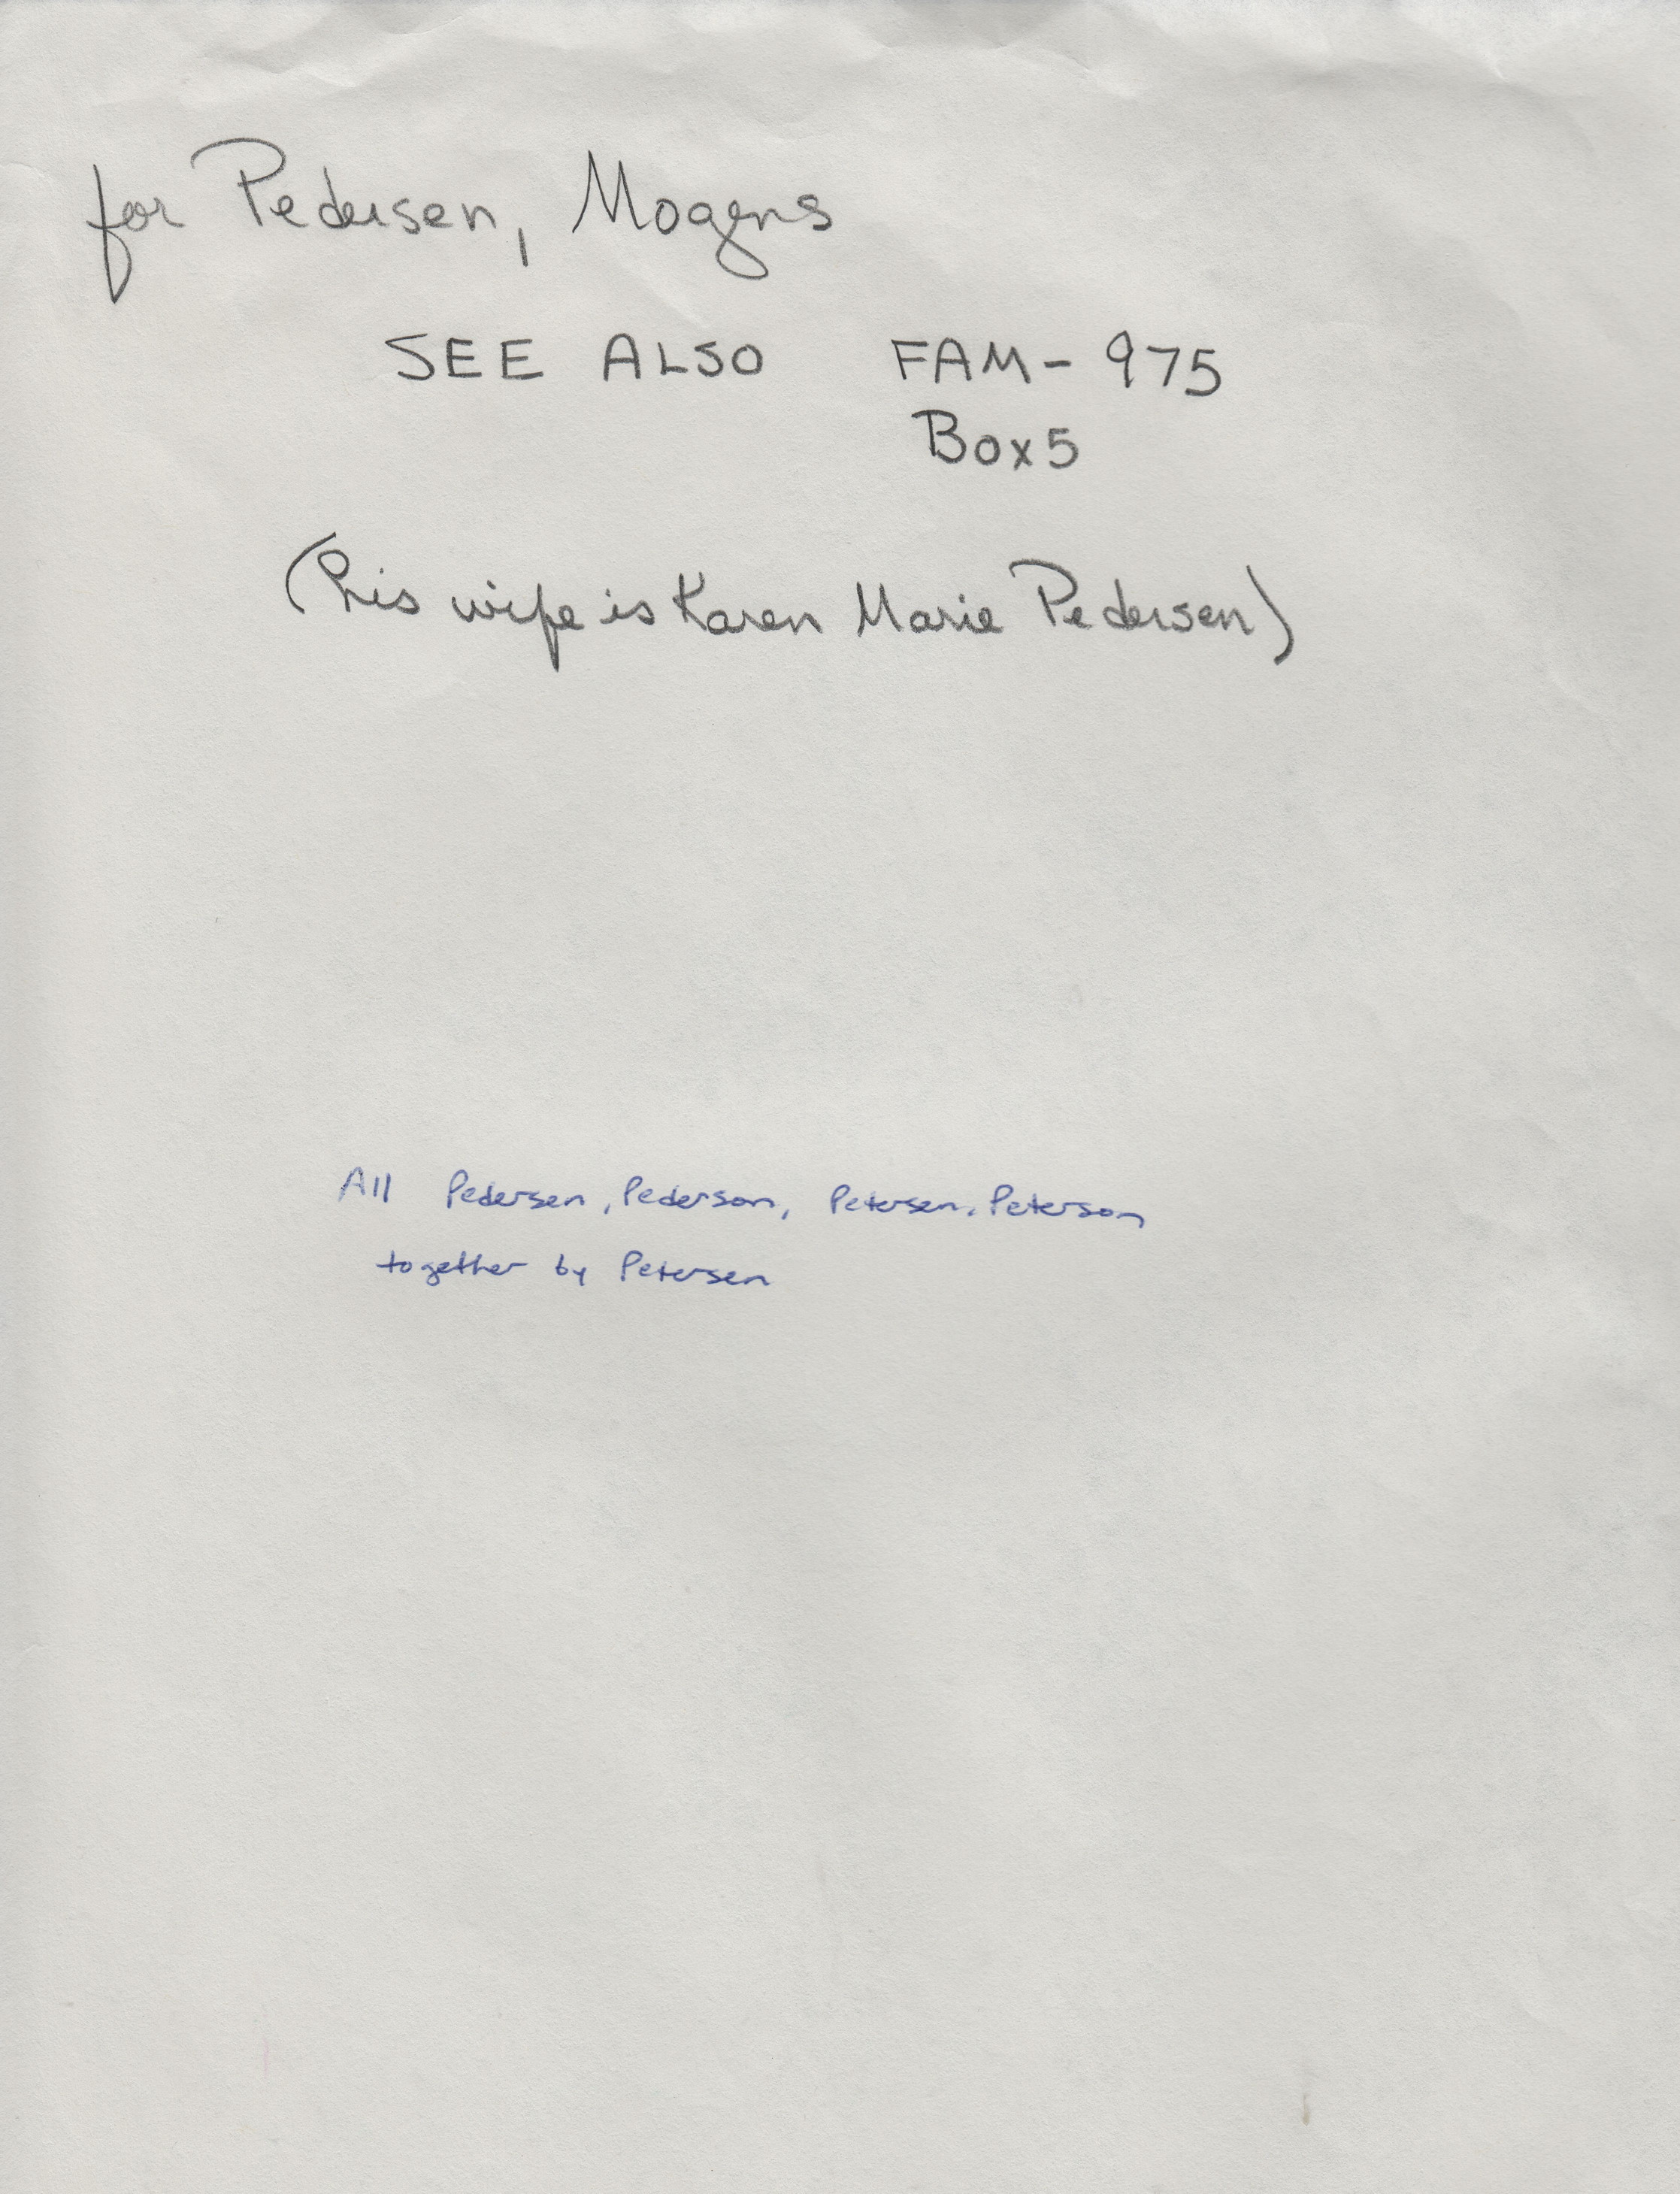 for Pedersen, Mogens
SEE ALSO FAM-975
Box 5
(his wife is Karen Marie Pedersen)
All Pedersen, Pederson, Petersen, Peterson
together by Petersen